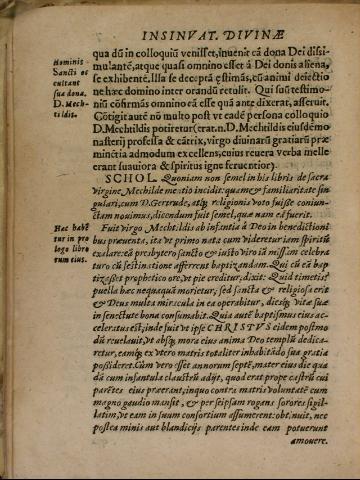 INSINVAT. DIVINÆ
qua dū in colloquiū venisset, inuenit eā dona Dei dissi-
mulantē, atque quasi omnino esset à Dei donis aliena,
se exhibentē, Illa se deceptā ęstimās, cū animi deiectio
ne hæc domino inter orandū retulit. Qui suū testimo-
niū cōfirmās omnino eā esse quā ante dixerat, asseruit.
Cōtigit autē nō multo post vt eadē persona colloquio
D. Mechtildis potiretur (erat. n. D. Mechtildis eiusdē mo
nasterij professa & cātrix, virgo diuinarū gratiarū præ
minētia admodum excellens, cuius reuera verba melle
erant suauiora & spiritus igne feruentior)
Hominis
Sancti oc
cultant
sua dona.
D. Mech-
tildis.
SCHOL. Quoniam non semel in his libris de sacra
virgine Mechtilde mētio incidit: quamę & familiaritate sin
gulari, cum D. Gertrude, atq́; religionis voto fuisse coniun-
ctam nouimus, dicendum fuit semel, quæ nam ea fuerit.
Fuit virgo Mechtildis ab infantia à Deo in benedictioni
bus præuenta, ita vt primo nata cum videretur iam spiritū
exalare: eā presbytero sancto & iusto viro iā missam celebra
turo cū festinatione afferrent baptizandam. Qui cū eā bap
tizasset prophetico ore, vt pie creditur, dixit: Quid timetis?
puella hæc nequaquā morietur, sed sancta & religiosa erit
& Deus multa miracula in ea operabitur, diesq́; vitæ suæ
in senectute bona consumabit. Quia autē baptismus eius ac-
celeratus est, inde fuit vt ipse CHRISTVS eidem postmo
dū reuelauit, vt absq́; mora eius anima Deo templū dedica-
retur, eamq́; ex vtero matris totaliter inhabitādo sua gratia
possideret. Cùm vero esset annorum septē, mater eius die qua
dā cum infantula claustrū adijt, quod erat prope castrū cui
parētes eius præerant, inquo contra matris voluntatē cum
magno gaudio mansit, & per seipsam rogans sorores sigil-
latim, vt eam in suum consortium assumerent: obtinuit, nec
postea minis aut blandicijs parentes inde eam potuerunt
amouere.
Hac habē
tur in pro
logo libro
rum eius.